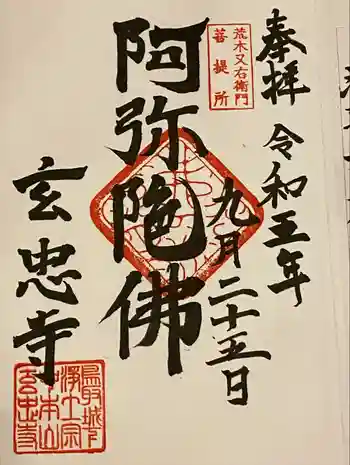 奉拝
令和五年
九月二十五日
荒木又右衛門
菩提所
阿弥陀佛
玄忠寺
鳥取城下
浄土宗
本山
玄忠寺